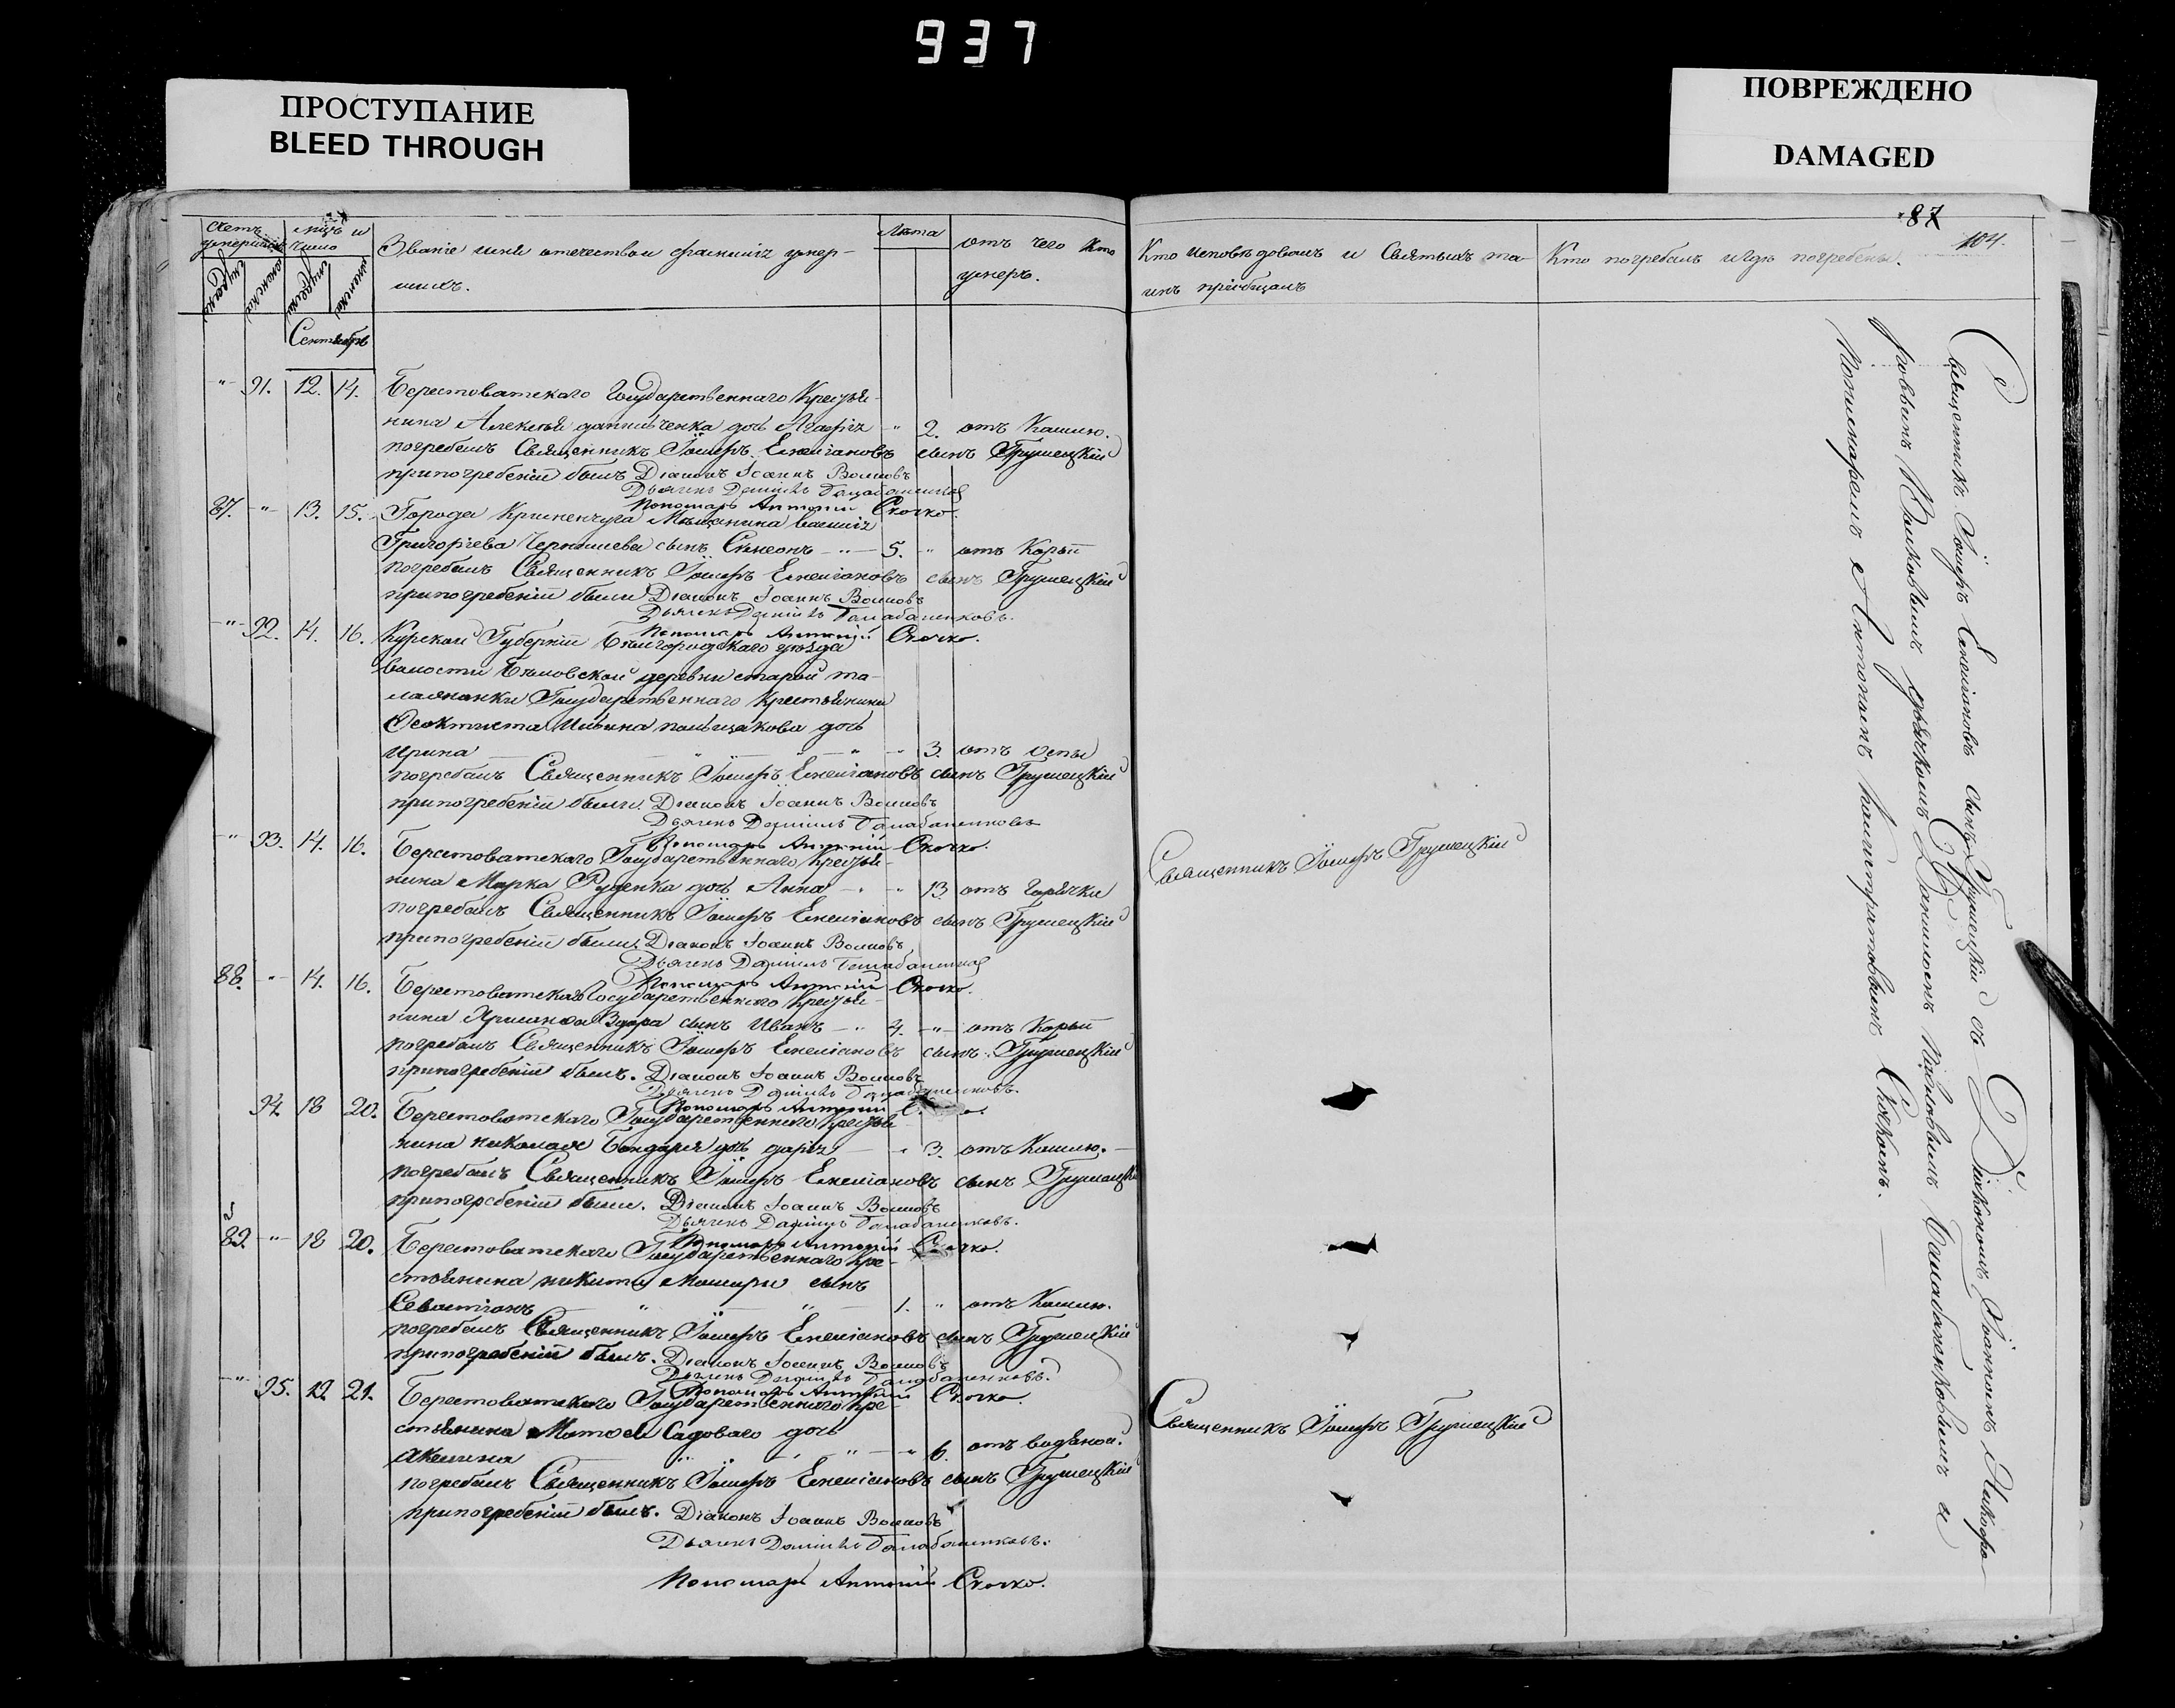 937
ПРОСТУПАНИЕ
BLEED THROUGH
ПОВРЕЖДЕНО
DAMAGED
87
104.
Счетъ умершихъ
Мѣс. и число
Званіе имя отечество и фамилія умер-
шихъ.
Лѣта
отъ чего кто
умеръ.
Кто исповѣдовалъ и Святыхъ та-
инъ пріобщалъ
Кто погребалъ и гдѣ погребены.
Сентябрь
" 91. 12. 14. Берестоватскаго Государственнаго Крестья-
нина Алексѣя дочь Агафія " 2. отъ Кашлю.
погребалъ Священникъ Іосифъ Емеліановъ сынъ Грушецкій
припогребеніи былъ Діаконъ Іоаннъ Волковъ
Дьячекъ Даніилъ
Пономарь Антоній Скочко.
87. " 13. 15. Города Крименчуга Мѣщанина Василія
Григорьева Чернышева сынъ Симеонъ " 5. " отъ Корѣи
погребалъ Священникъ Іосифъ Емеліановъ сынъ Грушецкій
припогребеніи были Діаконъ Іоаннъ Волковъ
Дьячекъ Даніилъ Балабаненковъ.
Пономарь Антоній Скочко.
" 92. 14. 16. Курской Губерніи Бѣлгородскаго уѣзда
волости Бѣловской деревни старой та-
Государственнаго Крестьянина
Феоктиста Ильина дочь
Ирина " " 3. отъ оспы
погребалъ Священникъ Іосифъ Емеліановъ сынъ Грушецкій
припогребеніи были. Діаконъ Іоаннъ Волковъ
Дьячекъ Даніилъ Балабаненковъ
Пономарь Антоній Скочко.
" 93. 14. 16. Берестоватскаго Государственнаго Крестья-
нина Марка Руденка дочь Анна " " 13 отъ горячки
Священникъ Іосифъ Грушецкій
погребалъ Священникъ Іосифъ Емеліановъ сынъ Грушецкій
припогребеніи были. Діаконъ Іоаннъ Волковъ
Дьячекъ Даніилъ
Пономарь Антоній Скочко.
88. " 14. 16. Берестоватскаго Государственнаго Крестья-
нина сынъ Иванъ " 4. " отъ Корѣи
погребалъ Священникъ Іосифъ Емеліановъ сынъ Грушецкій
припогребеніи былъ. Діаконъ Іоаннъ Волковъ
Дьячекъ Даніилъ Балабаненковъ.
Пономарь Антоній
94. 18 20. Берестоватскаго Государственнаго Крестья-
нина Николая Бондаря дочь Дарія " 3. отъ Кашлю.
погребалъ Священникъ Іосифъ Емеліановъ сынъ Грушецкій
припогребеніи были. Діаконъ Іоаннъ Волковъ
Дьячекъ Даніилъ Балабаненковъ.
Пономарь Антоній Скочко.
89. " 18 20. Берестоватскаго Государственнаго Кре-
стьянина Никиты сынъ
Севастіанъ " " 1. " отъ Кашлю.
погребалъ Священникъ Іосифъ Емеліановъ сынъ Грушецкій
припогребеніи былъ. Діаконъ Іоаннъ Волковъ
Дьячекъ Даніилъ Балабаненковъ.
Пономарь Антоній Скочко.
" 95. 19. 21. Берестоватскаго Государственнаго Кре-
стьянина Матфея Садоваго дочь
Акилина " " 6. отъ водяной.
Священникъ Іосифъ Грушецкій
погребалъ Священникъ Іосифъ Емеліановъ сынъ Грушецкій
припогребеніи былъ. Діаконъ Іоаннъ Волковъ
Дьячекъ Даніилъ Балабаненковъ.
Пономарь Антоній Скочко.
Священникъ Іосифъ Емеліановъ сынъ Грушецкій съ Діакономъ Іоанномъ Никифо-
ровымъ Волковымъ дьячкомъ Даніиломъ Балабаненковымъ и
Пономаремъ Антоніемъ Скочкомъ.